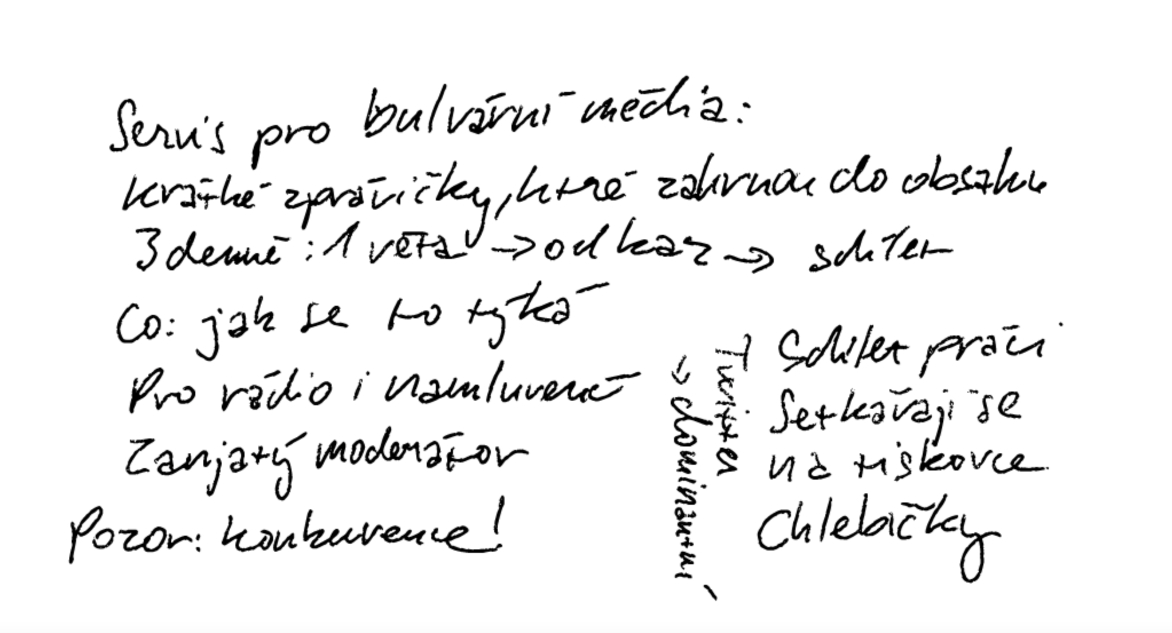 Servis pro bulvární média:
krátké zprávičky, které zahrnou do obsahu
3 denně: 1 věta → odkaz → sdílet
Co: jak se to týká
Pro rádio i namluvené
Zanjatý moderátor
Pozor: konkurence!
Twitter
→ dominantní
Sdílet práci
Setkávají se
na tiskovce
Chlebíčky